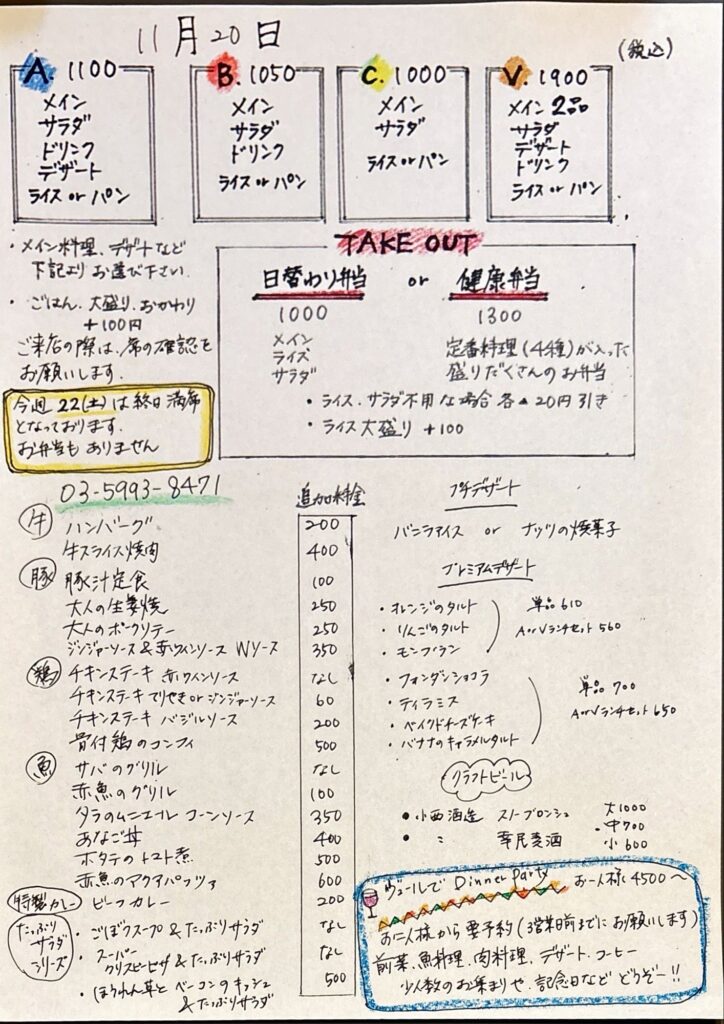 11月20日
(税込)
A. 1100
メイン
サラダ
ドリンク
デザート
ライス or パン
B. 1050
メイン
サラダ
ドリンク
ライス or パン
C. 1000
メイン
サラダ
ライス or パン
V. 1900
メイン 2品
サラダ
デザート
ドリンク
ライス or パン
・メイン料理、デザートなど
下記よりお選び下さい.
・ごはん、大盛り、おかわり
+100円
ご来店の際は、席の確認を
お願いします.
今週 22(土)は終日満席
となっております.
お弁当もありません
TAKE OUT
日替わり弁当 or 健康弁当
1000
メイン
ライス
サラダ
1300
定番料理(4種)が入った
盛りだくさんのお弁当
・ライス、サラダ不用な場合 各▲20円引き
・ライス大盛り +100
03-5993-8471
追加料金
牛 ハンバーグ 200
牛スライス焼肉 400
豚 豚汁定食 100
大人の生姜焼 250
大人のポークソテー 250
ジンジャーソース&赤ワインソース Wソース 350
鶏 チキンステーキ 赤ワインソース なし
チキンステーキ てりやき or ジンジャーソース 60
チキンステーキ バジルソース 200
骨付鶏のコンフィ 500
魚 サバのグリル なし
赤魚のグリル 100
タラのムニエル コーンソース 350
あなご丼 400
ホタテのトマト煮 500
赤魚のアクアパッツァ 600
特製カレー ビーフカレー 200
たっぷり
サラダ
シリーズ
・ごぼうスープ&たっぷりサラダ なし
・スーパー
クリスピーピザ&たっぷりサラダ なし
・ほうれん草とベーコンのキッシュ
&たっぷりサラダ 500
プチデザート
バニラアイス or ナッツの焼菓子
プレミアムデザート
・オレンジのタルト
・りんごのタルト
・モンブラン
単品 610
AorVランチセット 560
・フォンダンショコラ
・ティラミス
・ベイクドチーズケーキ
・バナナのキャラメルタルト
単品 700
AorVランチセット 650
クラフトビール
・小西酒造 スノーブロンシュ
・ 〃 幸民麦酒
大1000
中700
小600
ヴュールで Dinner Party お一人様 4500〜
お二人様から 要予約(3営業日前までにお願いします)
前菜、魚料理、肉料理、デザート、コーヒー
少人数のお集まりや、記念日など どうぞー!!